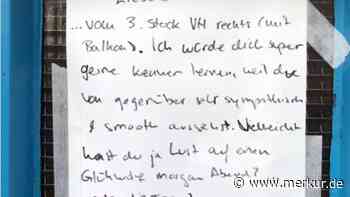 ...vom 3. Stock VH rechts (mit
Balkon). Ich würde dich super
gerne kennen lernen, weil du
von gegenüber sehr sympathisch
& smooth aussiehst. Vielleicht
hast du ja Lust auf einen
Glühwein morgen Abend?
www.merkur.de